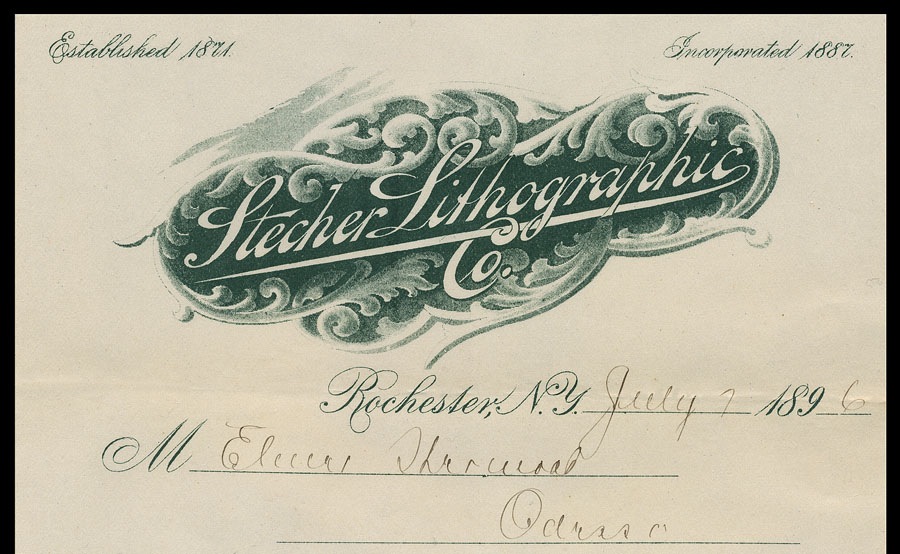 Established 1871.
Incorporated 1887.
Stecher Lithographic
Co.
Rochester, N.Y. July 7 1896
M Elmer Sherwood
Odessa